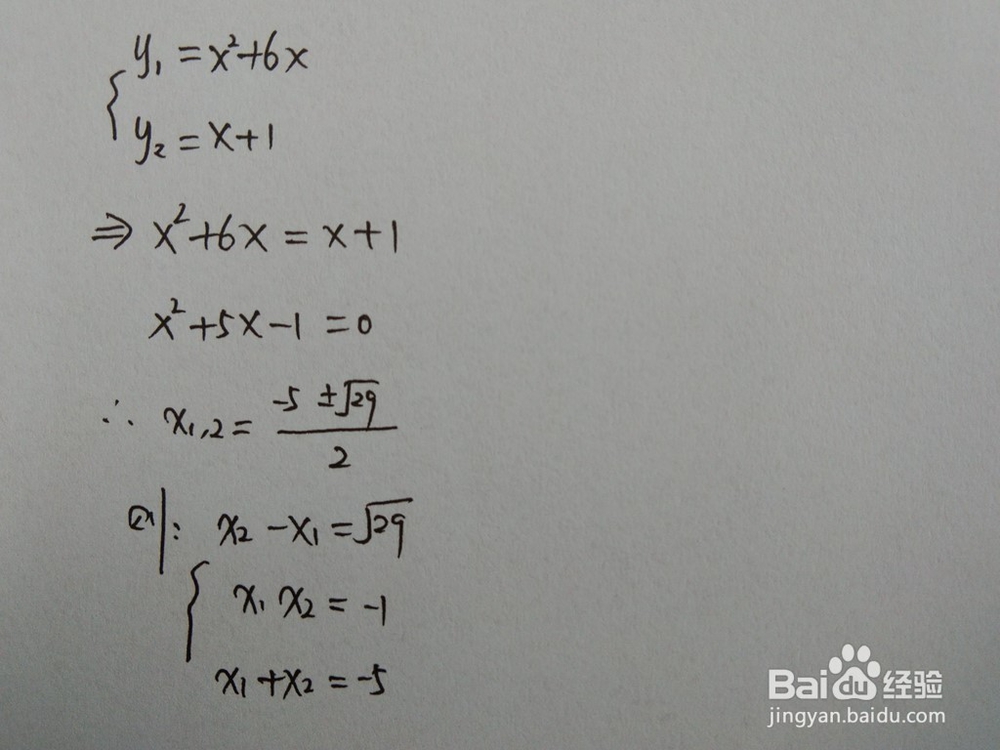 y₁ = x²+6x
y₂ = x+1
⇒ x²+6x = x+1
x²+5x-1 = 0
∴ x₁,₂ = (-5 ±√29)/2
则: x₂ - x₁ = √29
x₁ x₂ = -1
x₁ + x₂ = -5
Baidu经验
jingyan.baidu.com